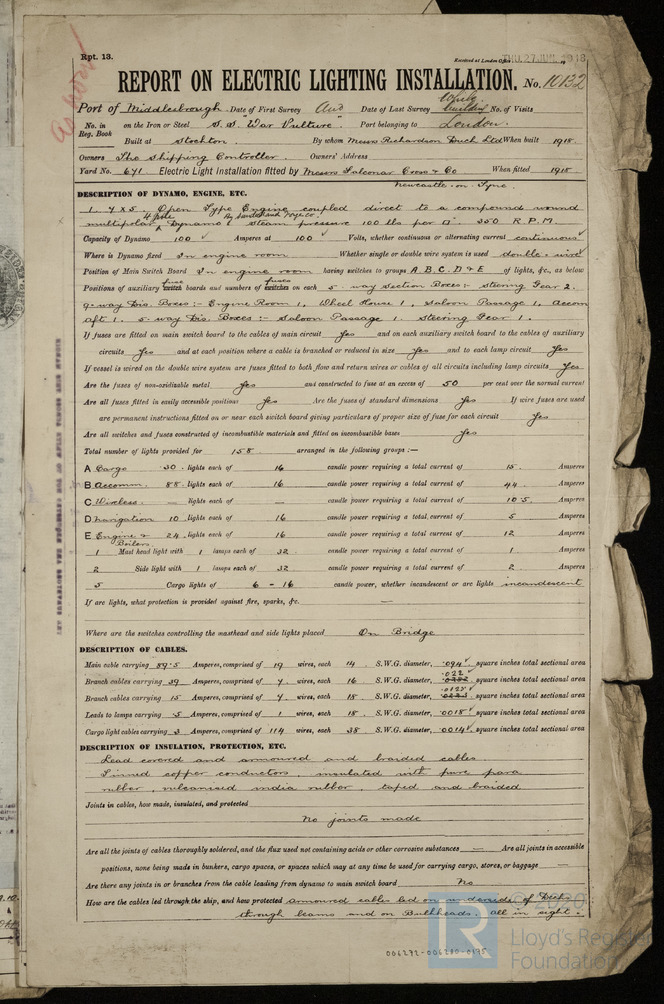 Rpt. 13.
Received at London Office THU. 27 JUN. 1918
REPORT ON ELECTRIC LIGHTING INSTALLATION. No. 10132
Port of Middlesbrough Date of First Survey Aud Date of Last Survey No. of Visits
No. in Reg. Book on the Iron or Steel S.S. "War Vulture" Port belonging to London.
Built at Stockton By whom Messrs Richardson Duck Ltd When built 1918.
Owners The Shipping Controller Owners' Address
Yard No. 671 Electric Light Installation fitted by Messrs Falconar Cross & Co When fitted 1918
Newcastle-on-Tyne.
DESCRIPTION OF DYNAMO, ENGINE, ETC.
1. 7 x 5. Open Type Engine coupled direct to a compound wound
4 pole
multipolar Dynamo. Steam pressure 100 lbs per □" 350 R.P.M.
Capacity of Dynamo 100 Amperes at 100 Volts, whether continuous or alternating current continuous
Where is Dynamo fixed In engine room Whether single or double wire system is used double wire
Position of Main Switch Board In engine room having switches to groups A B, C, D & E of lights, &c., as below
Positions of auxiliary fuse switch boards and numbers of fuses switches on each 5 way Section Boxes:- Steering Gear 2.
9-way Dis. Boxes:- Engine Room 1, Wheel House 1, Saloon Passage 1, Accom
aft 1. 5-way Dis. Boxes:- Saloon Passage 1. Steering Gear 1.
If fuses are fitted on main switch board to the cables of main circuit Yes and on each auxiliary switch board to the cables of auxiliary
circuits Yes and at each position where a cable is branched or reduced in size Yes and to each lamp circuit Yes
If vessel is wired on the double wire system are fuses fitted to both flow and return wires or cables of all circuits including lamp circuits Yes
Are the fuses of non-oxidizable metal Yes and constructed to fuse at an excess of 50 per cent over the normal current
Are all fuses fitted in easily accessible positions Yes Are the fuses of standard dimensions Yes If wire fuses are used
are permanent instructions fitted on or near each switch board giving particulars of proper size of fuse for each circuit Yes
Are all switches and fuses constructed of incombustible materials and fitted on incombustible bases Yes
Total number of lights provided for 158 arranged in the following groups :—
A Cargo 30 lights each of 16 candle power requiring a total current of 15 Amperes
B Accomm. 88 lights each of 16 candle power requiring a total current of 44 Amperes
C Wireless. — lights each of — candle power requiring a total current of 10.5 Amperes
D Navigation 10 lights each of 16 candle power requiring a total current of 5 Amperes
E Engine & Boilers 24 lights each of 16 candle power requiring a total current of 12 Amperes
1 Mast head light with 1 lamps each of 32 candle power requiring a total current of 1 Amperes
2 Side light with 1 lamps each of 32 candle power requiring a total current of 2 Amperes
5 Cargo lights of 6 - 16 candle power, whether incandescent or arc lights incandescent
If arc lights, what protection is provided against fire, sparks, &c. —
Where are the switches controlling the masthead and side lights placed On Bridge
DESCRIPTION OF CABLES.
Main cable carrying 89.5 Amperes, comprised of 19 wires, each 14 S.W.G. diameter, .094 square inches total sectional area
Branch cables carrying 39 Amperes, comprised of 7 wires, each 16 S.W.G. diameter, .022 square inches total sectional area
Branch cables carrying 15 Amperes, comprised of 7 wires, each 18 S.W.G. diameter, .0125 square inches total sectional area
Leads to lamps carrying .5 Amperes, comprised of 1 wires, each 18 S.W.G. diameter, .0018 square inches total sectional area
Cargo light cables carrying 3 Amperes, comprised of 114 wires, each 38 S.W.G. diameter, .0014 square inches total sectional area
DESCRIPTION OF INSULATION, PROTECTION, ETC.
Lead covered and armoured and braided cables
Tinned copper conductors, insulated with pure para
rubber, vulcanised india rubber, taped and braided
Joints in cables, how made, insulated, and protected
No joints made
Are all the joints of cables thoroughly soldered, and the flux used not containing acids or other corrosive substances — Are all joints in accessible
positions, none being made in bunkers, cargo spaces, or spaces which may at any time be used for carrying cargo, stores, or baggage —
Are there any joints in or branches from the cable leading from dynamo to main switch board No
How are the cables led through the ship, and how protected armoured cables led on underside of Decks
through beams and on Bulkheads. all in sight.
006272-006280-0195
LR
© 2020
Lloyd's Register
Foundation